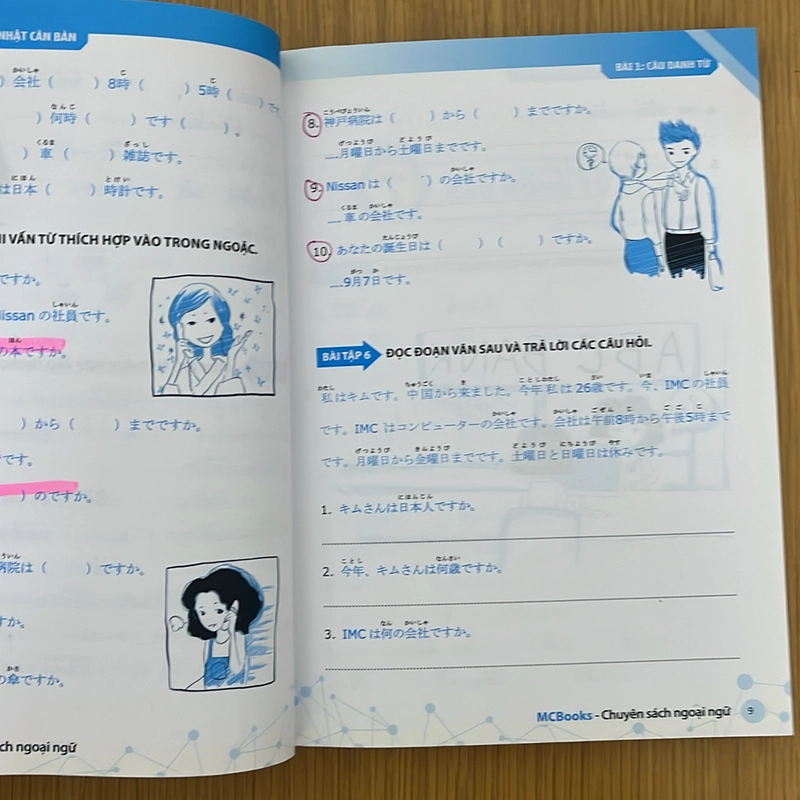 NHẬT CĂN BẢN
) 会社 ( ) 8時 ( ) 5時 ( ) で
) 何時 ( ) です ( )。
) 車 ( ) 雑誌です。
は日本 ( ) 時計です。
VẤN TỪ THÍCH HỢP VÀO TRONG NGOẶC.
ですか。
Nissan の社員です。
の本ですか。
) から ( ) までですか。
です。
) のですか。
病院は ( ) ですか。
すか。
の傘ですか。
ch ngoại ngữ
BÀI 1: CÂU DANH TỪ
8. 神戸病院は ( ) から ( ) までですか。
....月曜日から土曜日までです。
9. Nissan は ( ) の会社ですか。
.... 車の会社です。
10. あなたの誕生日は ( ) ( ) ですか。
....9月7日です。
BÀI TẬP 6 ĐỌC ĐOẠN VĂN SAU VÀ TRẢ LỜI CÁC CÂU HỎI.
私はキムです。中国から来ました。今年私は26歳です。今、IMC の社員
です。IMC はコンピューターの会社です。会社は午前8時から午後5時まで
です。月曜日から金曜日までです。土曜日と日曜日は休みです。
1. キムさんは日本人ですか。
2. 今年、キムさんは何歳ですか。
3. IMC は何の会社ですか。
MCBooks - Chuyên sách ngoại ngữ 9